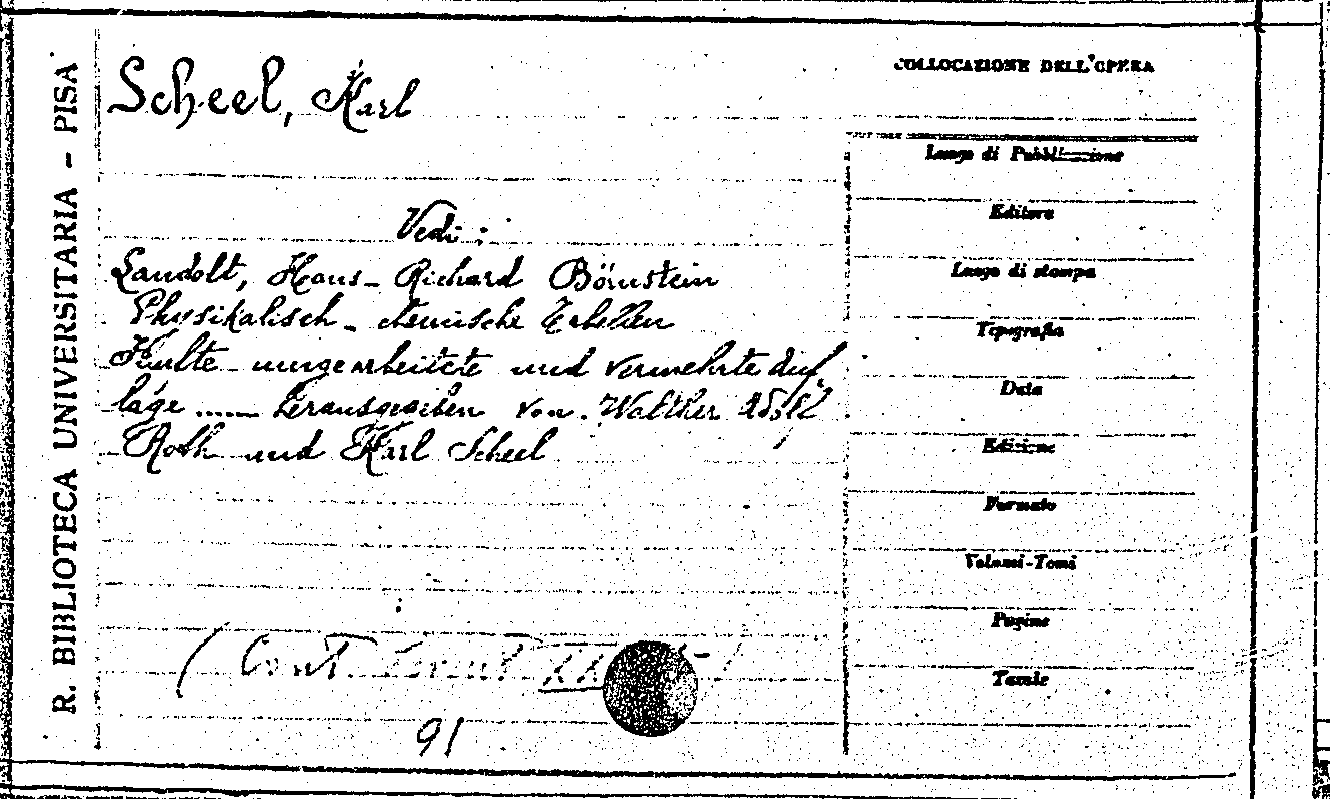 R. BIBLIOTECA UNIVERSITARIA - PISA
Scheel, Karl
Vedi:
Landolt, Hans-Richard Börnstein
Physikalisch-chemische Tabellen
Fünfte umgearbeitete und vermehrte Auf-
lage ...... herausgegeben von Walther
Roth und Karl Scheel
( Cont
91
COLLOCAZIONE DELL'OPERA
Luogo di Pubblicazione
Editore
Luogo di stampa
Tipografia
Data
Edizione
Formato
Volumi-Tomi
Pagine
Tavole